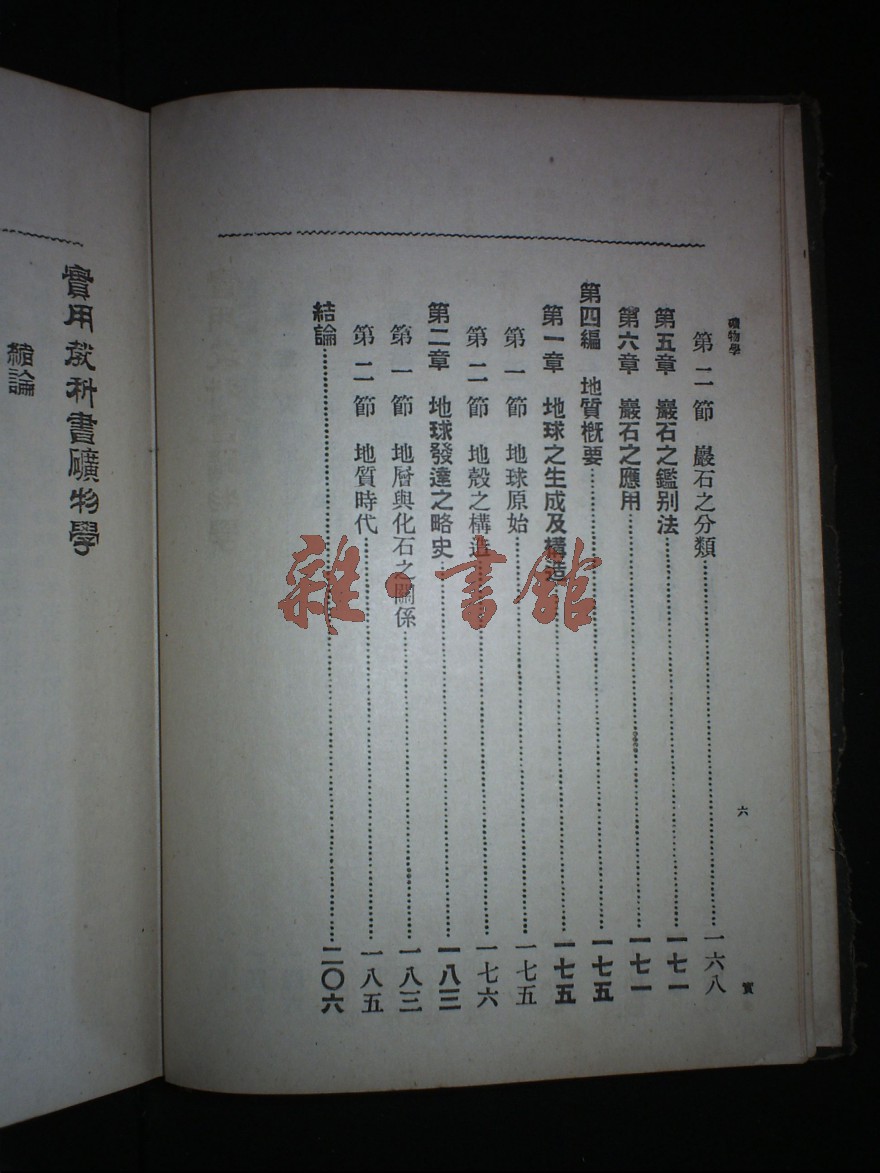 礦物學
第二節 巖石之分類 一六八
第五章 巖石之鑑别法 一七一
第六章 巖石之應用 一七一
第四編 地質概要 一七五
第一章 地球之生成及構造 一七五
第一節 地球原始 一七五
第二節 地殼之構造 一七六
第二章 地球發達之略史 一八三
第一節 地層與化石之關係 一八三
第二節 地質時代 一八五
結論 二〇六
六
實
實用敎科書礦物學
緒論
雜·書館